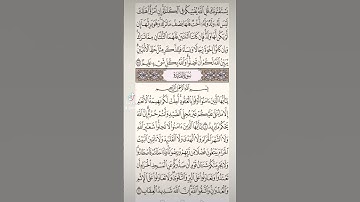 يَسْتَفْتُونَكَ قُلِ ٱللَّهُ يُفْتِيكُمْ فِي ٱلْكَلَٰلَةِ إِنِ ٱمْرُؤٌا۟ هَلَكَ
لَيْسَ لَهُۥ وَلَدٌ وَلَهُۥٓ أُخْتٌ فَلَهَا نِصْفُ مَا تَرَكَ وَهُوَ يَرِثُهَآ إِن
لَّمْ يَكُن لَّهَا وَلَدٌ فَإِن كَانَتَا ٱثْنَتَيْنِ فَلَهُمَا ٱلثُّلُثَانِ مِمَّا تَرَكَ
وَإِن كَانُوٓا۟ إِخْوَةً رِّجَالًا وَنِسَآءً فَلِلذَّكَرِ مِثْلُ حَظِّ ٱلْأُنثَيَيْنِ
يُبَيِّنُ ٱللَّهُ لَكُمْ أَن تَضِلُّوا۟ وَٱللَّهُ بِكُلِّ شَيْءٍ عَلِيمٌۢ ١٧٦
سُورَةُ المَائِدَةِ
بِسْمِ ٱللَّهِ ٱلرَّحْمَٰنِ ٱلرَّحِيمِ
يَٰٓأَيُّهَا ٱلَّذِينَ ءَامَنُوٓا۟ أَوْفُوا۟ بِٱلْعُقُودِ أُحِلَّتْ لَكُم بَهِيمَةُ ٱلْأَنْعَٰمِ
إِلَّا مَا يُتْلَىٰ عَلَيْكُمْ غَيْرَ مُحِلِّي ٱلصَّيْدِ وَأَنتُمْ حُرُمٌ إِنَّ ٱللَّهَ
يَحْكُمُ مَا يُرِيدُ ١ يَٰٓأَيُّهَا ٱلَّذِينَ ءَامَنُوا۟ لَا تُحِلُّوا۟ شَعَٰٓئِرَ ٱللَّهِ
وَلَا ٱلشَّهْرَ ٱلْحَرَامَ وَلَا ٱلْهَدْيَ وَلَا ٱلْقَلَٰٓئِدَ وَلَآ ءَآمِّينَ ٱلْبَيْتَ
ٱلْحَرَامَ يَبْتَغُونَ فَضْلًا مِّن رَّبِّهِمْ وَرِضْوَٰنًا وَإِذَا حَلَلْتُمْ فَٱصْطَادُوا۟
وَلَا يَجْرِمَنَّكُمْ شَنَـَٔانُ قَوْمٍ أَن صَدُّوكُمْ عَنِ ٱلْمَسْجِدِ ٱلْحَرَامِ
أَن تَعْتَدُوا۟ وَتَعَاوَنُوا۟ عَلَى ٱلْبِرِّ وَٱلتَّقْوَىٰ وَلَا تَعَاوَنُوا۟ عَلَى ٱلْإِثْمِ
وَٱلْعُدْوَٰنِ وَٱتَّقُوا۟ ٱللَّهَ إِنَّ ٱللَّهَ شَدِيدُ ٱلْعِقَابِ ٢